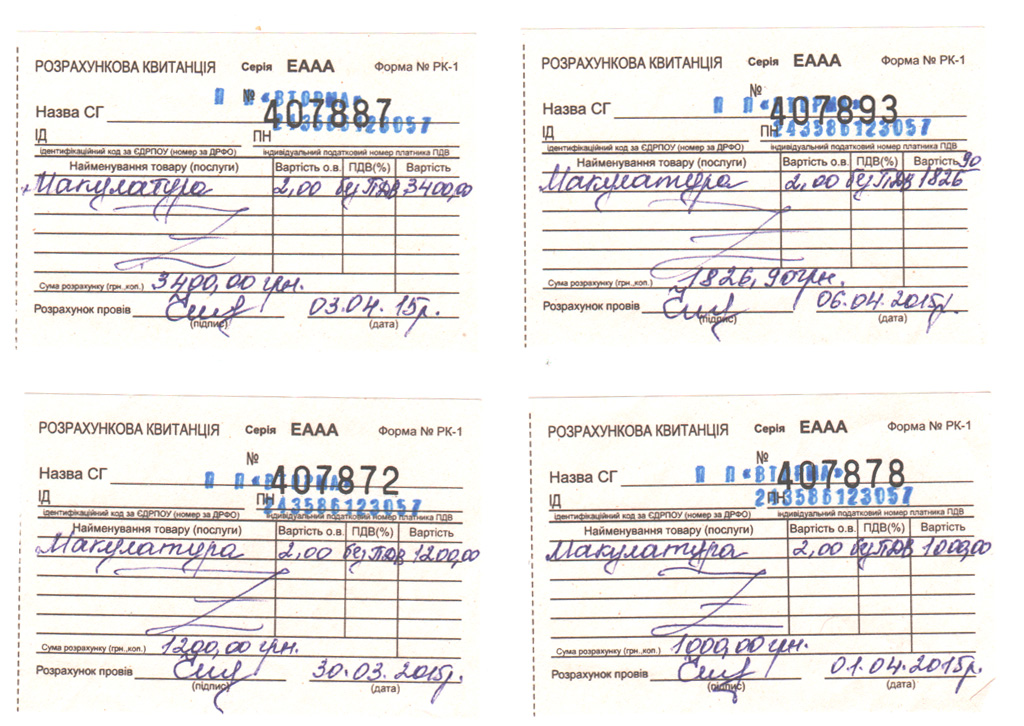 РОЗРАХУНКОВА КВИТАНЦІЯ Серія ЕААА Форма № РК-1
№ 407887
П П «ВТОРМА»
Назва СГ
243586123057
ІД ПН
ідентифікаційний код за ЄДРПОУ (номер за ДРФО) індивідуальний податковий номер платника ПДВ
Найменування товару (послуги) Вартість о.в. ПДВ(%) Вартість
Макулатура 2,00 без ПДВ 3400,00
Сума розрахунку (грн.,коп.) 3400,00 грн.
Розрахунок провів 03.04.15р.
(підпис) (дата)
РОЗРАХУНКОВА КВИТАНЦІЯ Серія ЕААА Форма № РК-1
№ 407893
П П «ВТОРМА»
Назва СГ
243586123057
ІД ПН
ідентифікаційний код за ЄДРПОУ (номер за ДРФО) індивідуальний податковий номер платника ПДВ
Найменування товару (послуги) Вартість о.в. ПДВ(%) Вартість
Макулатура 2,00 без ПДВ 1826 90
Сума розрахунку (грн.,коп.) 1826,90 грн.
Розрахунок провів 06.04.2015р.
(підпис) (дата)
РОЗРАХУНКОВА КВИТАНЦІЯ Серія ЕААА Форма № РК-1
№ 407872
П П «ВТОРМА»
Назва СГ
243586123057
ІД ПН
ідентифікаційний код за ЄДРПОУ (номер за ДРФО) індивідуальний податковий номер платника ПДВ
Найменування товару (послуги) Вартість о.в. ПДВ(%) Вартість
Макулатура 2,00 без ПДВ 1200,00
Сума розрахунку (грн.,коп.) 1200,00 грн.
Розрахунок провів 30.03.2015р.
(підпис) (дата)
РОЗРАХУНКОВА КВИТАНЦІЯ Серія ЕААА Форма № РК-1
№ 407878
П П «ВТОРМА»
Назва СГ
243586123057
ІД ПН
ідентифікаційний код за ЄДРПОУ (номер за ДРФО) індивідуальний податковий номер платника ПДВ
Найменування товару (послуги) Вартість о.в. ПДВ(%) Вартість
Макулатура 2,00 без ПДВ 1000,00
Сума розрахунку (грн.,коп.) 1000,00 грн.
Розрахунок провів 01.04.2015р.
(підпис) (дата)